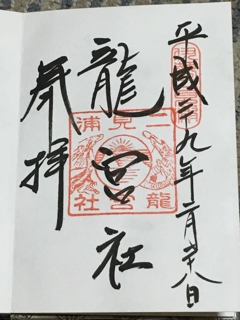 平成二九年二月十八日
龍宮社
奉拝
二見浦
龍宮社